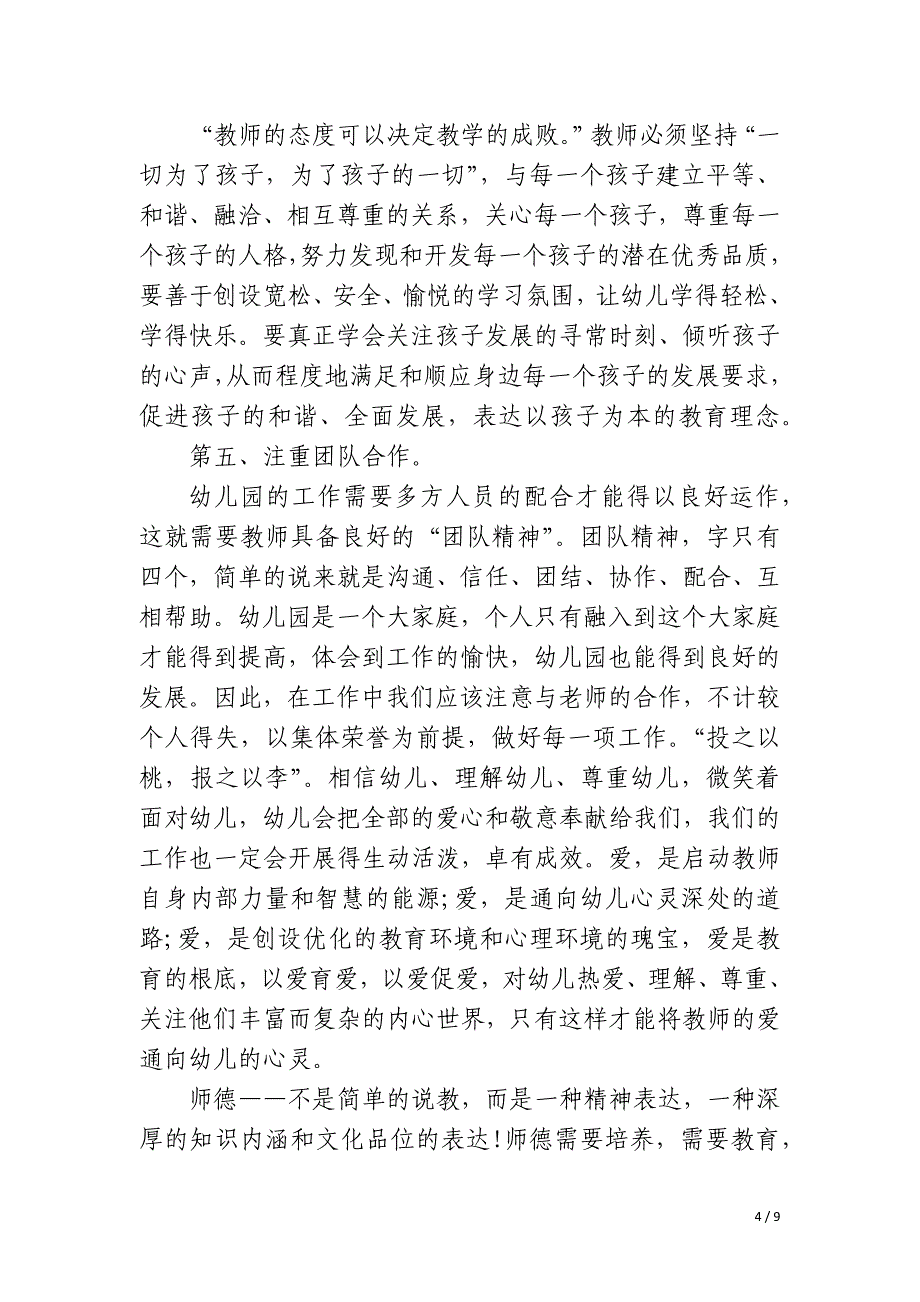 “教师的态度可以决定教学的成败。”教师必须坚持“一
切为了孩子，为了孩子的一切”，与每一个孩子建立平等、
和谐、融洽、相互尊重的关系，关心每一个孩子，尊重每一
个孩子的人格，努力发现和开发每一个孩子的潜在优秀品质，
要善于创设宽松、安全、愉悦的学习氛围，让幼儿学得轻松、
学得快乐。要真正学会关注孩子发展的寻常时刻、倾听孩子
的心声，从而程度地满足和顺应身边每一个孩子的发展要求，
促进孩子的和谐、全面发展，表达以孩子为本的教育理念。
第五、注重团队合作。
幼儿园的工作需要多方人员的配合才能得以良好运作，
这就需要教师具备良好的“团队精神”。团队精神，字只有
四个，简单的说来就是沟通、信任、团结、协作、配合、互
相帮助。幼儿园是一个大家庭，个人只有融入到这个大家庭
才能得到提高，体会到工作的愉快，幼儿园也能得到良好的
发展。因此，在工作中我们应该注意与老师的合作，不计较
个人得失，以集体荣誉为前提，做好每一项工作。“投之以
桃，报之以李”。相信幼儿、理解幼儿、尊重幼儿，微笑着
面对幼儿，幼儿会把全部的爱心和敬意奉献给我们，我们的
工作也一定会开展得生动活泼，卓有成效。爱，是启动教师
自身内部力量和智慧的能源;爱，是通向幼儿心灵深处的道
路;爱，是创设优化的教育环境和心理环境的瑰宝，爱是教
育的根底，以爱育爱，以爱促爱，对幼儿热爱、理解、尊重、
关注他们丰富而复杂的内心世界，只有这样才能将教师的爱
通向幼儿的心灵。
师德——不是简单的说教，而是一种精神表达，一种深
厚的知识内涵和文化品位的表达!师德需要培养，需要教育，
4 / 9